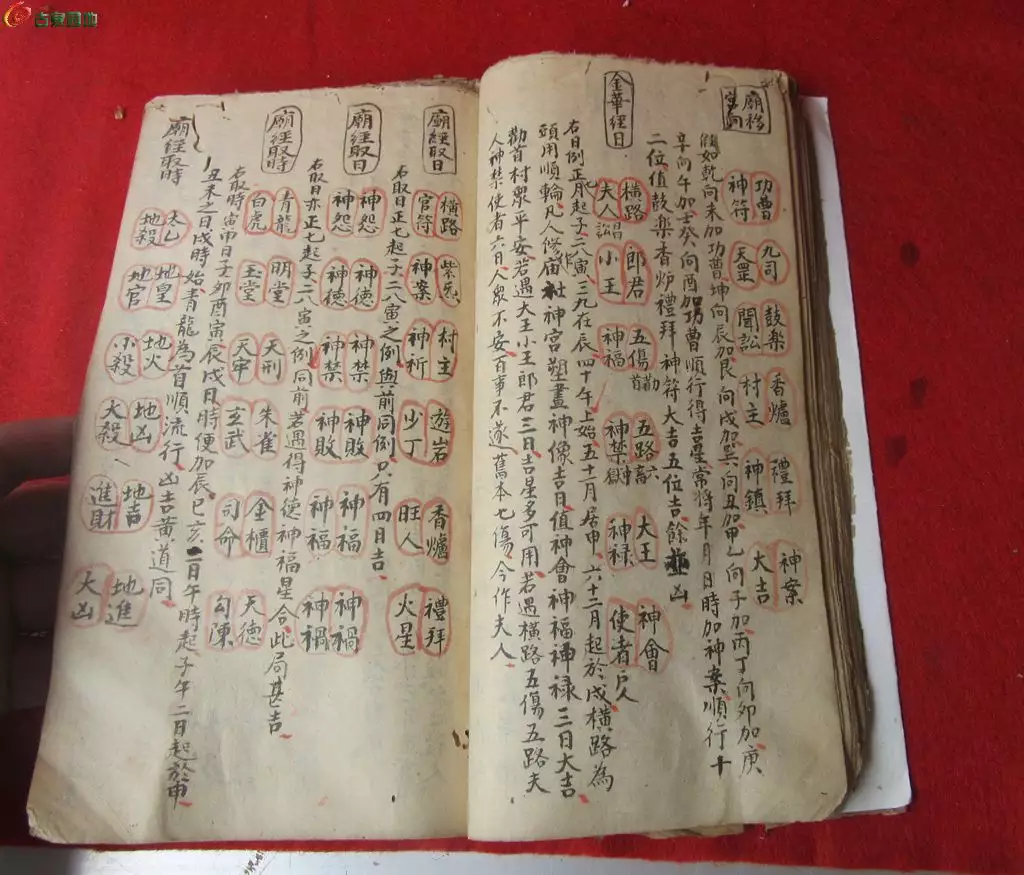 廟移宮向
功曹 九司 鼓樂 香爐 禮拜 神案
神符 天罡 聞訟 村主 神鎮 大吉
假如乾向未加功曹坤向辰加艮向戌加巽向丑加甲乙向子加丙丁向卯加庚
辛向午加壬癸向酉加功曹順行得吉星常將年月日時加神案順行十
二位值鼓樂香炉禮拜神符大吉五位吉餘並凶
金華經日
橫路 郎君 五傷 五路 大王 神會
夫人 小王 神福 神禁 神禄 使者
右日例正七月起子二八寅三九在辰四十午上始五十一月居申六十二月起於戌橫路為
頭用順輪凡人修廟社神宮塑畫神像吉日值神會神福神禄三日大吉
勸首村眾平安若遇大王小王郎君三日吉星多可用若遇橫路五傷五路夫
人神禁使者六日人眾不安百事不遂舊本七傷今作夫人
廟經取日
橫路 紫炁 村主 遊岩 香爐 禮拜
官符 神案 神祈 少丁 旺人 火星
右取日正七起子二八寅之例與前同例只有四日吉
廟經取日
神怨 神德 神禁 神敗 神福 神禍
神怨 神德 神禁 神敗 神福 神禍
右取日亦正七起子二八寅之例同前若遇得神德神福星合此局甚吉
廟經取時
青龍 明堂 天刑 朱雀 金櫃 天德
白虎 玉堂 天牢 玄武 司命 勾陳
右取時寅申日子卯酉寅辰戌日時便加辰巳亥二日午時起子午二日起於申
丑未之日戌時始青龍為首順流行凶吉黄道同
廟經取時
太乙 地皇 地火 地凶 地吉 地進
地殺 地官 小殺 大殺 進財 大凶